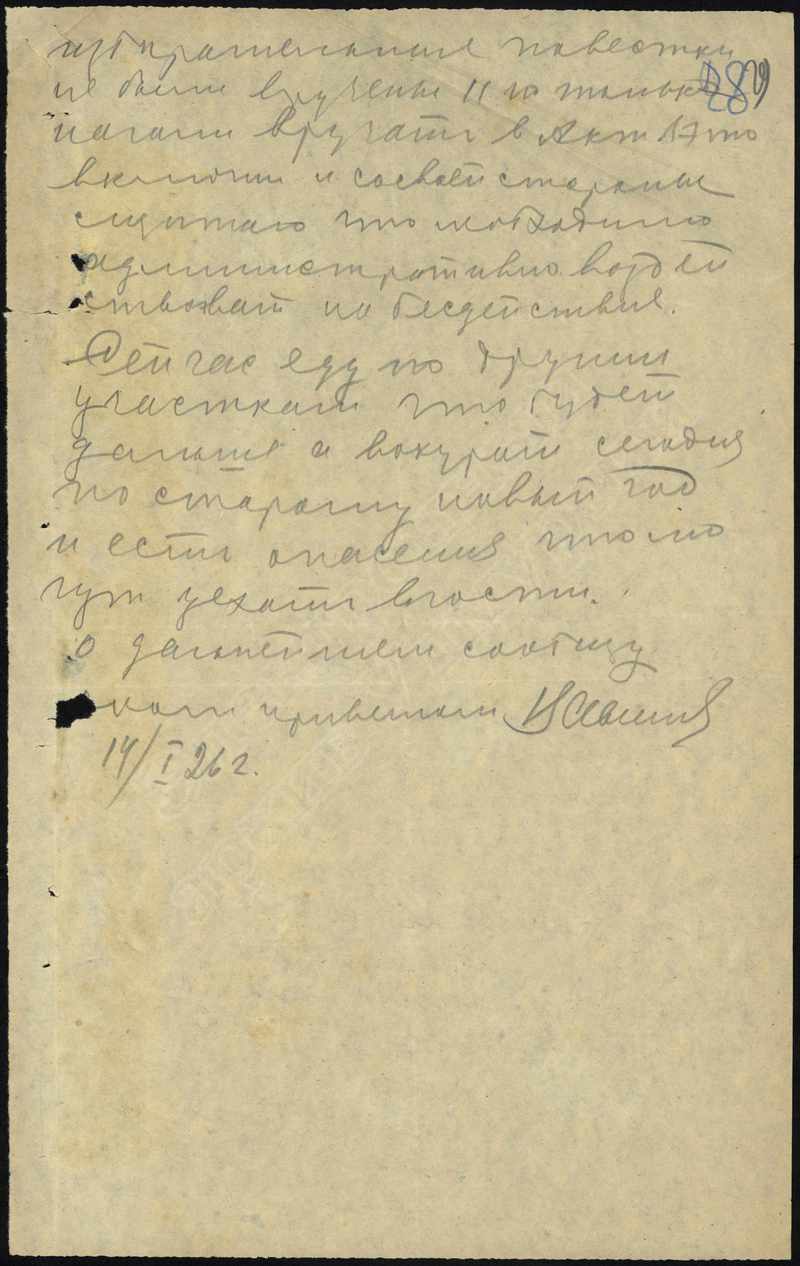 избирательные повестки
не были вручены и только
начали вручать в Акт это
включили и сосвоей стороны
считаю что необходимо
административно воздей
ствовать на бездействие.
Сейчас еду по другим
участкам что будет
дальше а вокурат сегодня
по старому новый год
и есть опасения что мо
гут уехать вгости.
о дальнейшем сообщу
приветом
14/I 26 г.